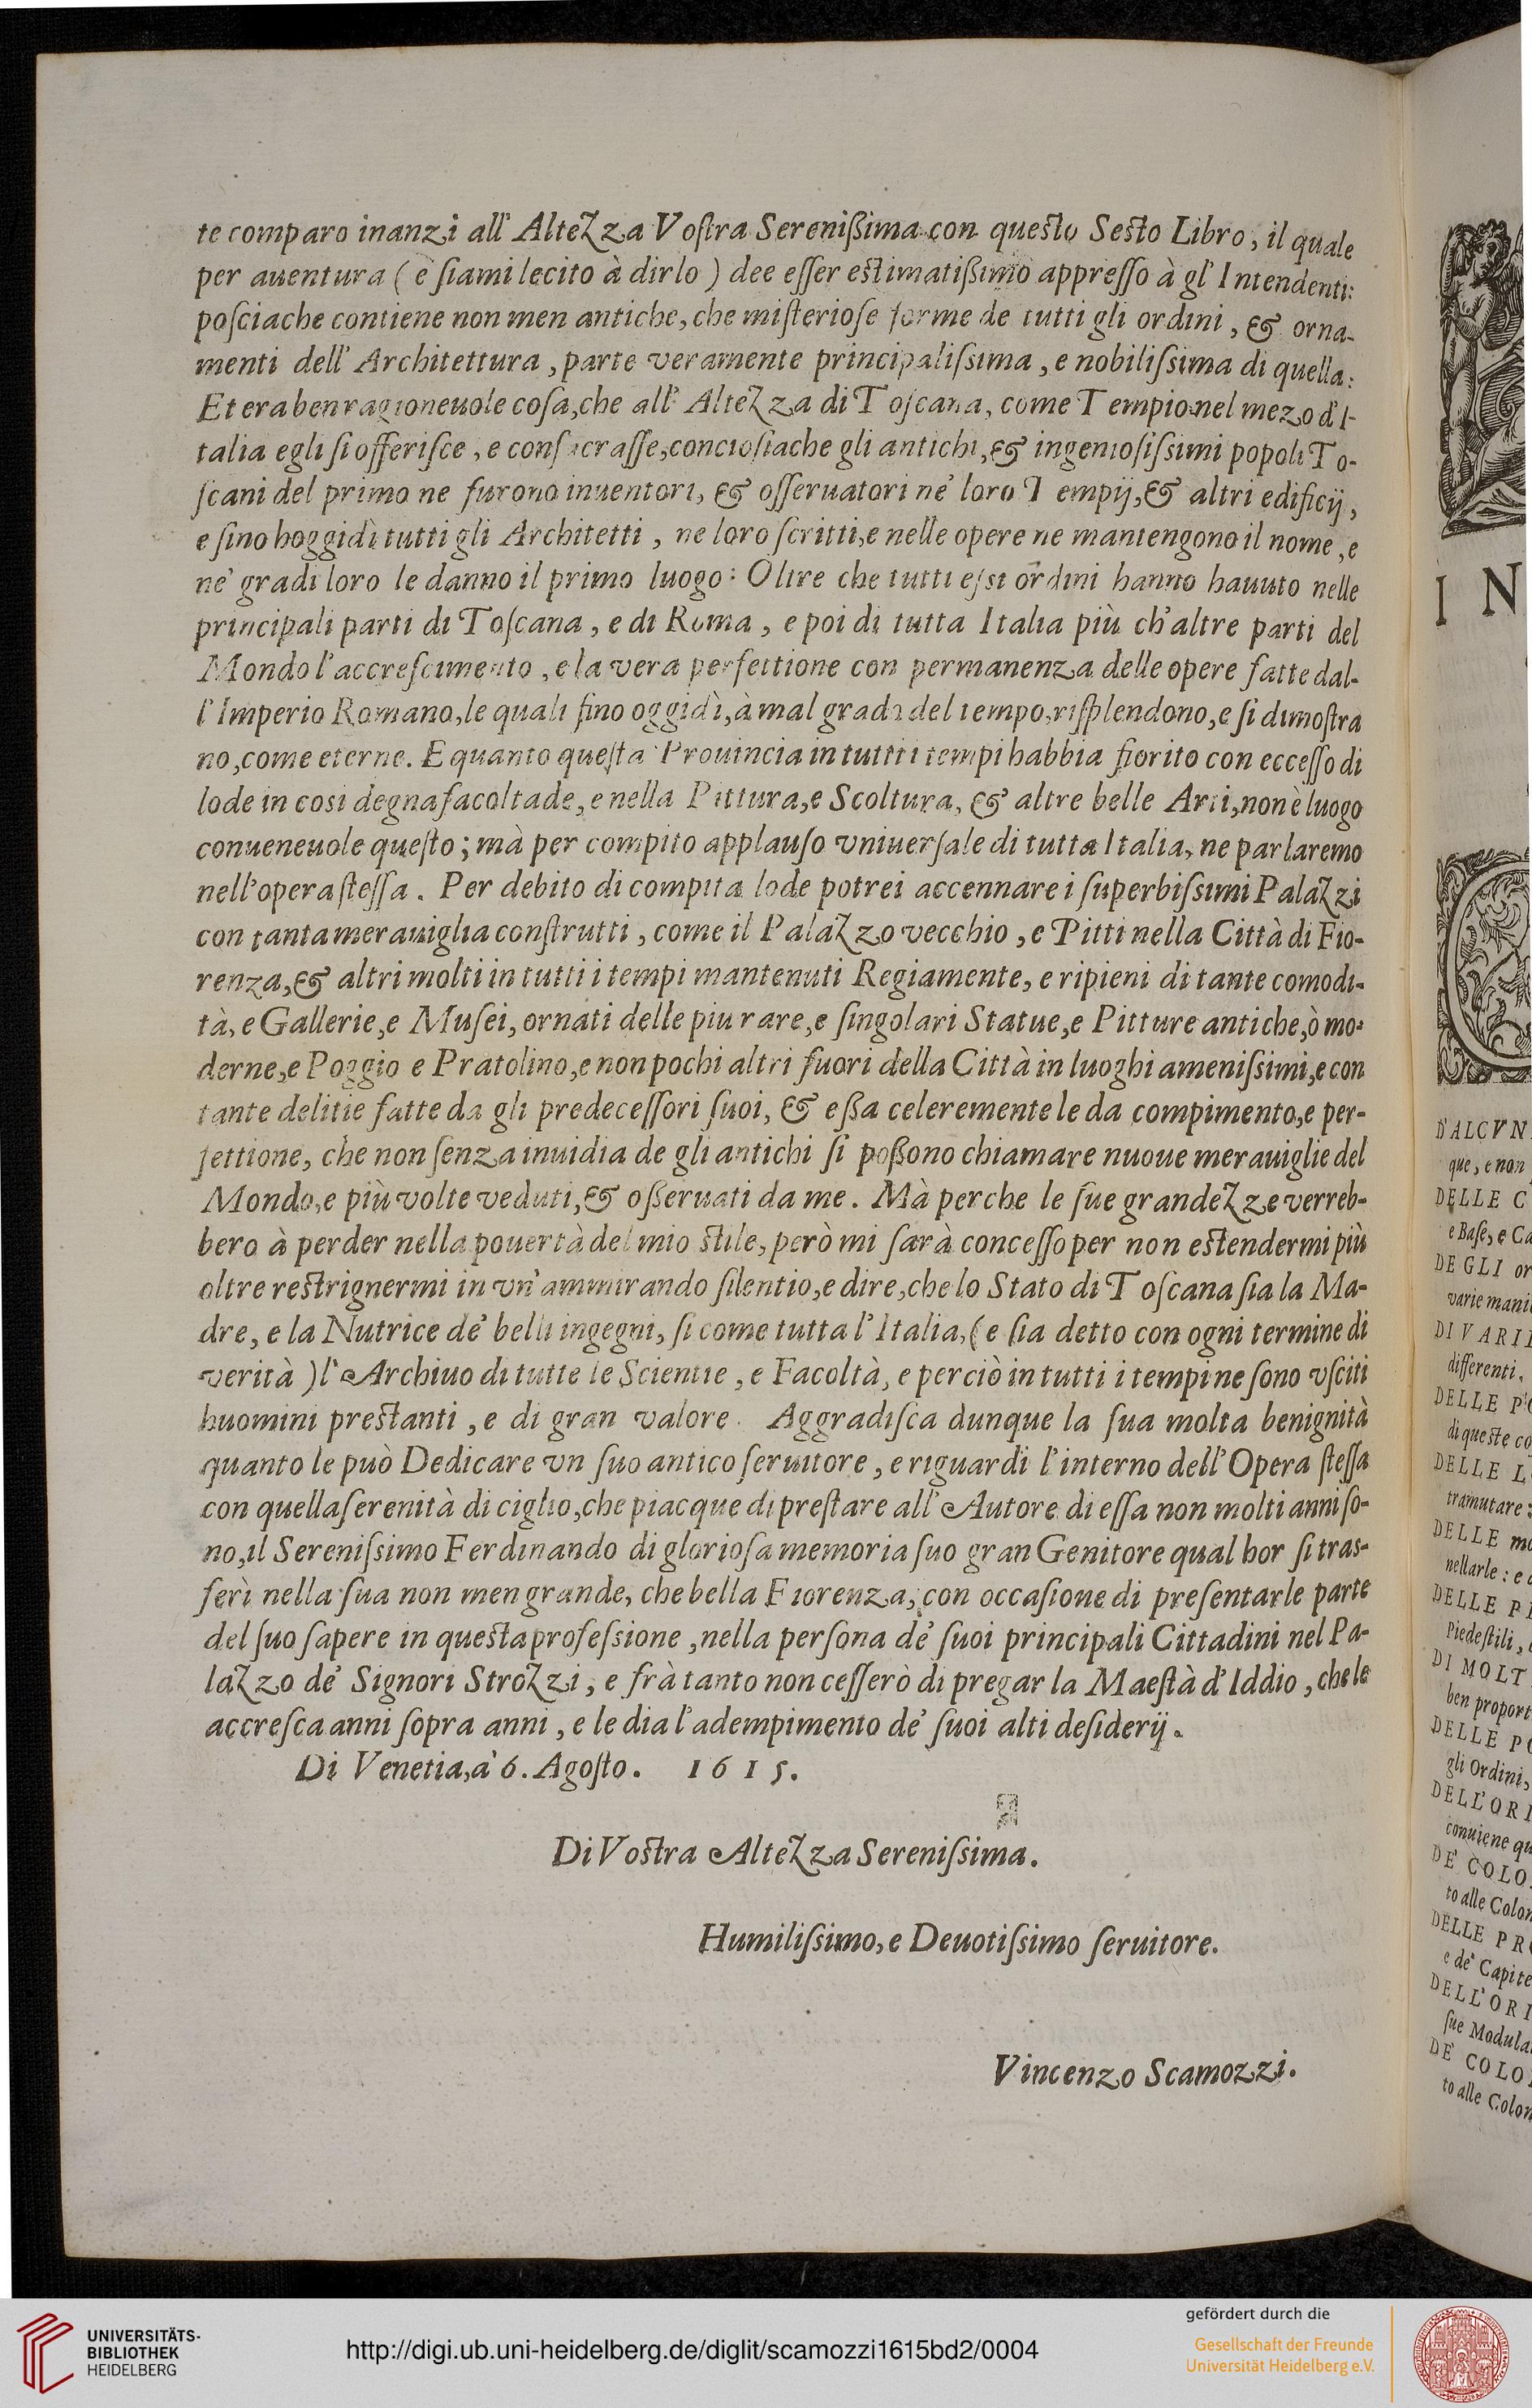 te comparo inanzi all' Altezza Vostra Serenißima con questo Sesto Libro, il quale
per auentura (e ſiami lecito à dirlo) dee eſſer eſtimatißimo appreſſo à gl' Intendenti:
poſciache contiene non men antiche, che miſterioſe forme de tutti gli ordini, & orna-
menti dell' Architettura, parte veramente principaliſsima, e nobiliſsima di quella:
Et era ben ragioneuole coſa, che all' Altezza di Toſcana, come Tempio nel mezo d' I-
talia egli ſi offeriſce, e conſacraſſe, concioſiache gli antichi, & ingenioſiſsimi popoli To-
ſcani del primo ne furono inuentori, & oſſeruatori ne' loro Tempij, & altri edificij,
e ſino hoggidì tutti gli Architetti, ne loro ſcritti, e nelle opere ne mantengono il nome, e
ne' gradi loro le danno il primo luogo: Oltre che tutti eſsi ordini hanno hauuto nelle
principali parti di Toſcana, e di Roma, e poi di tutta Italia più ch' altre parti del
Mondo l' accreſcimento, e la vera perfettione con permanenza delle opere fatte dal-
l' Imperio Romano, le quali fino oggidì, à mal grado del tempo, riſplendono, e ſi dimoſtra
no, come eterne. E quanto queſta Prouincia in tutti i tempi habbia fiorito con ecceſſo di
lode in cosi degna facoltade, e nella Pittura, e Scoltura, & altre belle Arti, non è luogo
conueneuole queſto; mà per compito applauſo vniuerſale di tutta Italia, ne parlaremo
nell' opera ſteſſa. Per debito di compita lode potrei accennare i ſuperbiſsimi Palazzi
con tanta merauiglia conſtrutti, come il Palazzo vecchio, e Pitti nella Città di Fio-
renza, & altri molti in tutti i tempi mantenuti Regiamente, e ripieni di tante comodi-
tà, e Gallerie, e Muſei, ornati delle piu rare, e ſingolari Statue, e Pitture antiche, ò mo-
derne, e Poggio e Pratolino, e non pochi altri fuori della Città in luoghi ameniſsimi, e con
tante delitie fatte da gli predeceſſori ſuoi, & eßa celeremente le da compimento, e per-
fettione, che non ſenza inuidia de gli antichi ſi poßono chiamare nuoue merauiglie del
Mondo, e più volte veduti, & oßeruati da me. Mà perche le ſue grandezze verreb-
bero à perder nella pouertà del mio ſtile, però mi ſarà conceſſo per non eſtendermi più
oltre reſtrignermi in vn' ammirando ſilentio, e dire, che lo Stato di Toſcana ſia la Ma-
dre, e la Nutrice de' belli ingegni, ſi come tutta l' Italia, (e ſia detto con ogni termine di
verità) l' Archiuo di tutte le Scientie, e Facoltà, e perciò in tutti i tempi ne ſono vſciti
huomini preſtanti, e di gran valore. Aggradiſca dunque la ſua molta benignità
quanto le può Dedicare vn ſuo antico ſeruitore, e riguardi l' interno dell' Opera ſteſſa
con quella ſerenità di ciglio, che piacque di preſtare all' Autore di eſſa non molti anni ſo-
no, il Sereniſsimo Ferdinando di glorioſa memoria ſuo gran Genitore qual hor ſi tras-
ferì nella ſua non men grande, che bella Fiorenza, con occaſione di preſentarle parte
del ſuo ſapere in queſta profeſsione, nella perſona de' ſuoi principali Cittadini nel Pa-
lazzo de' Signori Strozzi, e frà tanto non ceſſerò di pregar la Maeſtà d' Iddio, che le
accreſca anni ſopra anni, e le dia l' adempimento de' ſuoi alti deſiderij.
Di Venetia, à 6. Agoſto. 1615.
Di Voſtra Altezza Sereniſsima.
Humiliſsimo, e Deuotiſsimo ſeruitore.
Vincenzo Scamozzi.
I N
D'ALCVN
que, e non
DELLE C
e Baſe, e Ca
DE GLI or
varie mani
DI VARII
differenti,
DELLE P
di queſte co
DELLE L
tramutare:
DELLE m
nellarle: e
DELLE P
Piedeſtili,
DI MOLT
ben proport
DELLE P
gli Ordini,
DELL' ORI
conuiene qu
DE' COLO
to alle Colon
DELLE PR
e de' Capite
DELL' ORI
ſue Modula
DE' COLO
to alle Colon
UNIVERSITÄTS-
BIBLIOTHEK
HEIDELBERG
http://digi.ub.uni-heidelberg.de/diglit/scamozzi1615bd2/0004
gefördert durch die
Gesellschaft der Freunde
Universität Heidelberg e.V.